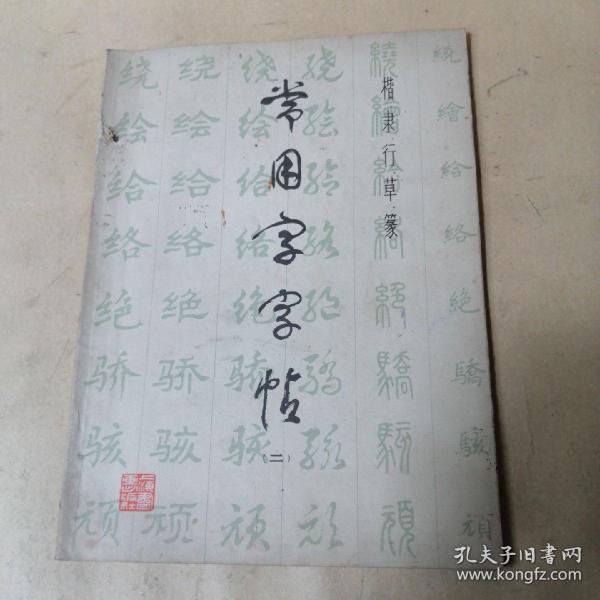 楷·隶·行·草·篆
常用字字帖
（二）
繞繪給絡絶驕駭頑
繞繪給絡絕驕駭頑
绕绘给络绝骄骇顽
绕绘给络绝骄骇顽
绕绘给络绝骄骇顽
绕绘给络绝骄骇顽
上海书画社
孔夫子旧书网
www.kongfz.com